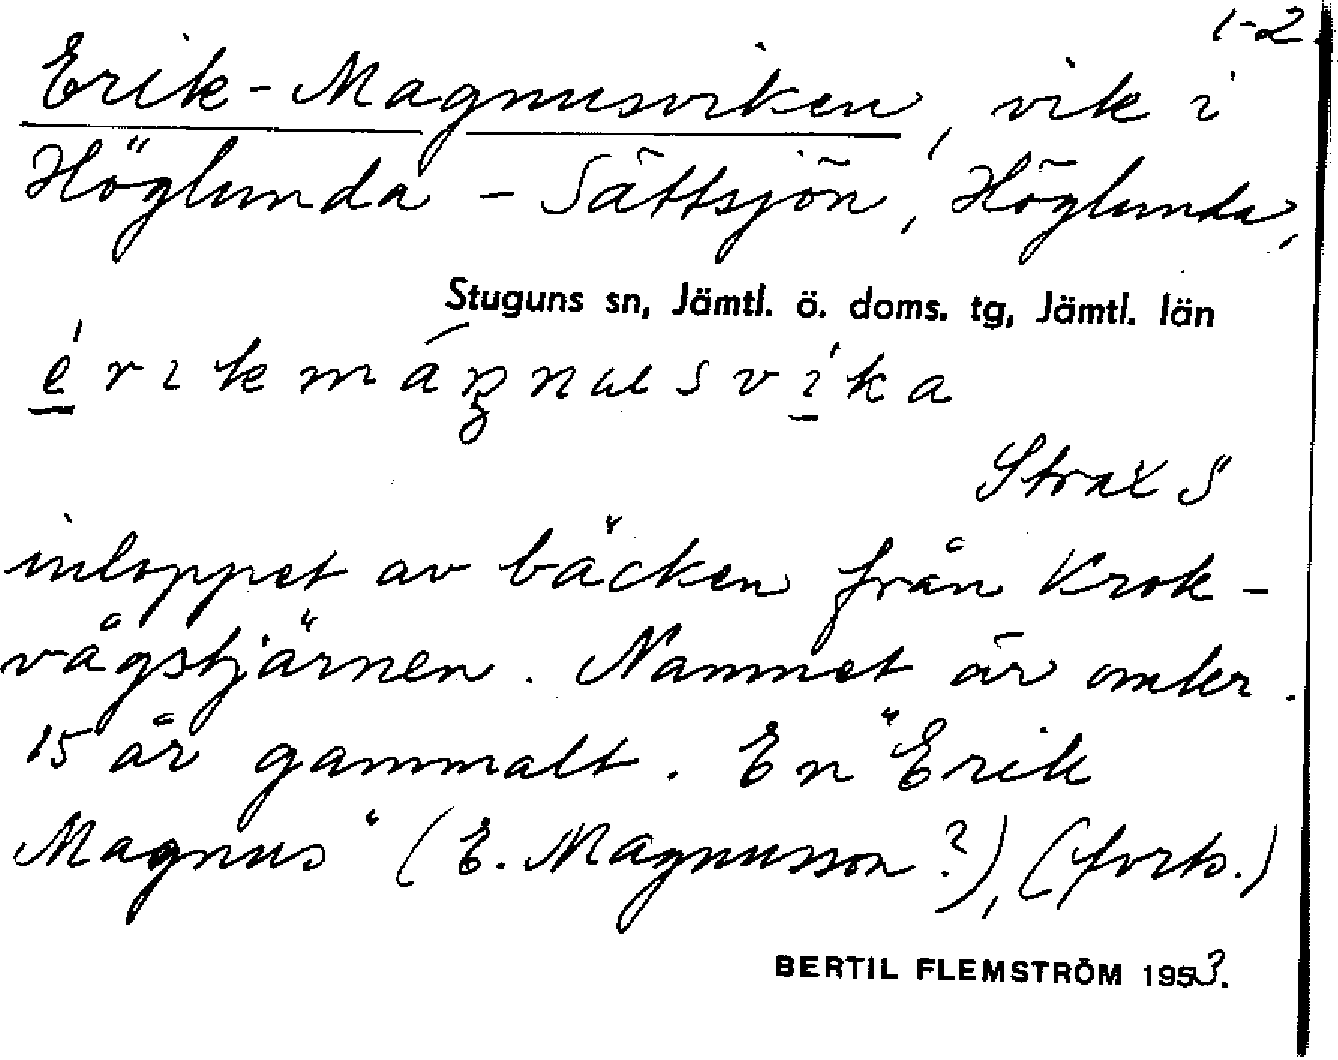 1-2.
Erik-Magnusviken, vik i
Höglunda - Sättsjön, Höglunda,
Stuguns sn, Jämtl. ö. doms. tg, Jämtl. län
é r ı k m á g n u s v í k a
Strax S
inloppet av bäcken från Krok-
vågstjärnen. Namnet är omkr.
15 år gammalt. En "Erik
Magnus" (E. Magnusson?), (forts.)
BERTIL FLEMSTRÖM 1953.